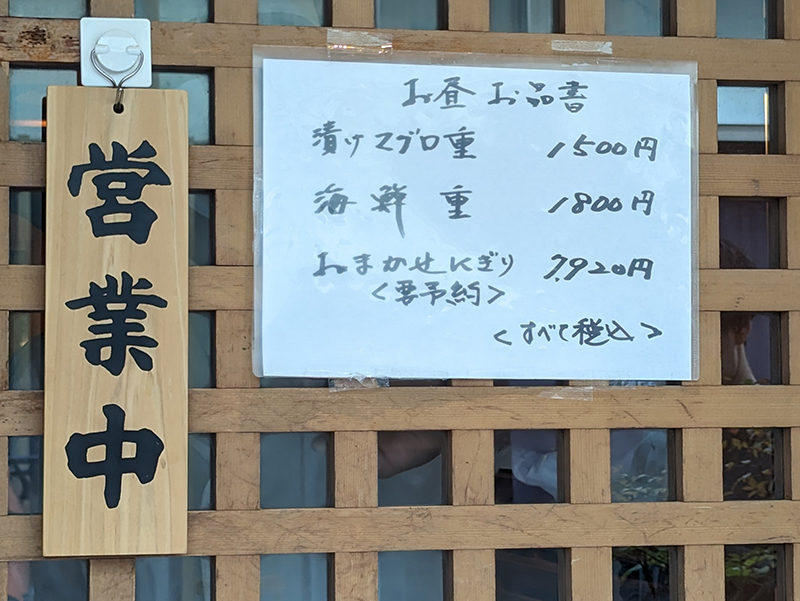 営業中
お昼 お品書
漬けマグロ重 1500円
海鮮重 1800円
おまかせにぎり 7,920円
<要予約>
<すべて税込>